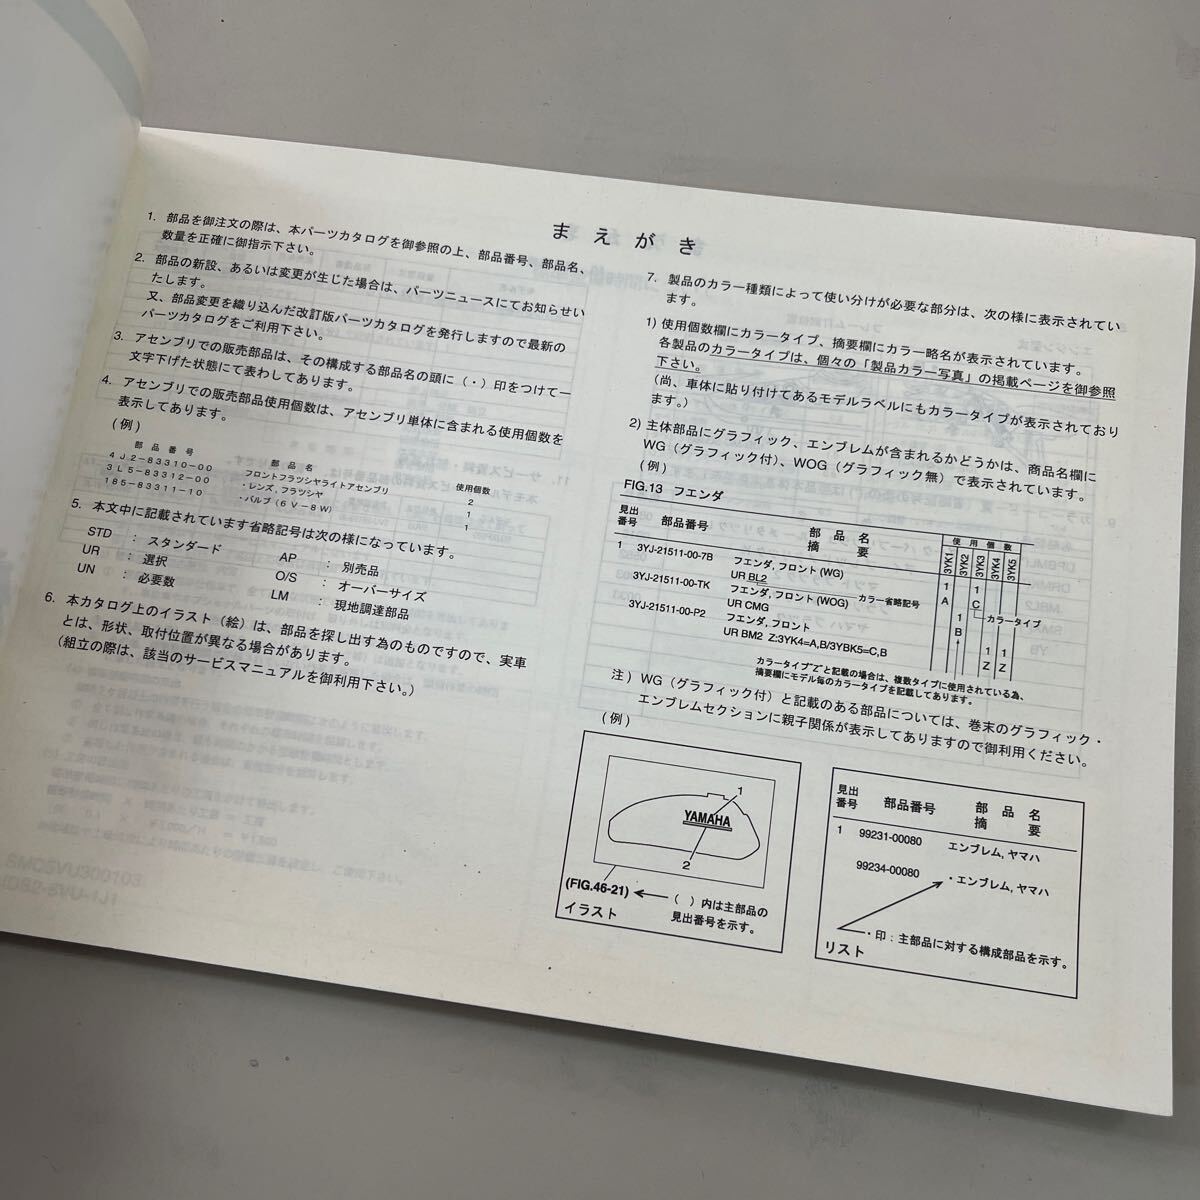 まえがき
1. 部品を御注文の際は、本パーツカタログを御参照の上、部品番号、部品名、
数量を正確に御指示下さい。
2. 部品の新設、あるいは変更が生じた場合は、パーツニュースにてお知らせい
たします。
又、部品変更を織り込んだ改訂版パーツカタログを発行しますので最新の
パーツカタログをご利用下さい。
3. アセンブリでの販売部品は、その構成する部品名の頭に(・)印をつけて一
文字下げた状態にて表わしてあります。
4. アセンブリでの販売部品使用個数は、アセンブリ単体に含まれる使用個数を
表示してあります。
(例)
部品番号 部品名 使用個数
4J2-83310-00 フロントフラツシヤライトアセンブリ 2
3L5-83312-00 ・レンズ,フラツシヤ 1
185-83311-10 ・バルブ(6V-8W) 1
5. 本文中に記載されています省略記号は次の様になっています。
STD : スタンダード AP : 別売品
UR : 選択 O/S : オーバーサイズ
UN : 必要数 LM : 現地調達部品
6. 本カタログ上のイラスト(絵)は、部品を探し出す為のものですので、実車
とは、形状、取付位置が異なる場合があります。
(組立の際は、該当のサービスマニュアルを御利用下さい。)
7. 製品のカラー種類によって使い分けが必要な部分は、次の様に表示されてい
ます。
1) 使用個数欄にカラータイプ、摘要欄にカラー略名が表示されています。
各製品のカラータイプは、個々の「製品カラー写真」の掲載ページを御参照
下さい。
(尚、車体に貼り付けてあるモデルラベルにもカラータイプが表示されており
ます。)
2) 主体部品にグラフィック、エンブレムが含まれるかどうかは、商品名欄に
WG(グラフィック付)、WOG(グラフィック無)で表示されています。
(例)
FIG.13 フエンダ
見出番号 部品番号 部品名 摘要 使用個数
3YK1 3YK2 3YK3 3YK4 3YK5
1 3YJ-21511-00-7B フエンダ,フロント(WG) 1 1
UR BL2 A C
カラー省略記号
カラータイプ
3YJ-21511-00-TK フエンダ,フロント(WOG) 1
UR CMG B
3YJ-21511-00-P2 フエンダ,フロント 1 1
UR BM2 Z:3YK4=A,B/3YBK5=C,B Z Z
カラータイプ"Z"と記載の場合は、複数タイプに使用されている為、
摘要欄にモデル毎のカラータイプを記載してあります。
注) WG(グラフィック付)と記載のある部品については、巻末のグラフィック・
エンブレムセクションに親子関係が表示してありますので御利用ください。
(例)
1
YAMAHA
2
(FIG.46-21)
( )内は主部品の
見出番号を示す。
イラスト
見出番号 部品番号 部品名 摘要
1 99231-00080 エンブレム,ヤマハ
99234-00080 ・エンブレム,ヤマハ
・印:主部品に対する構成部品を示す。
リスト